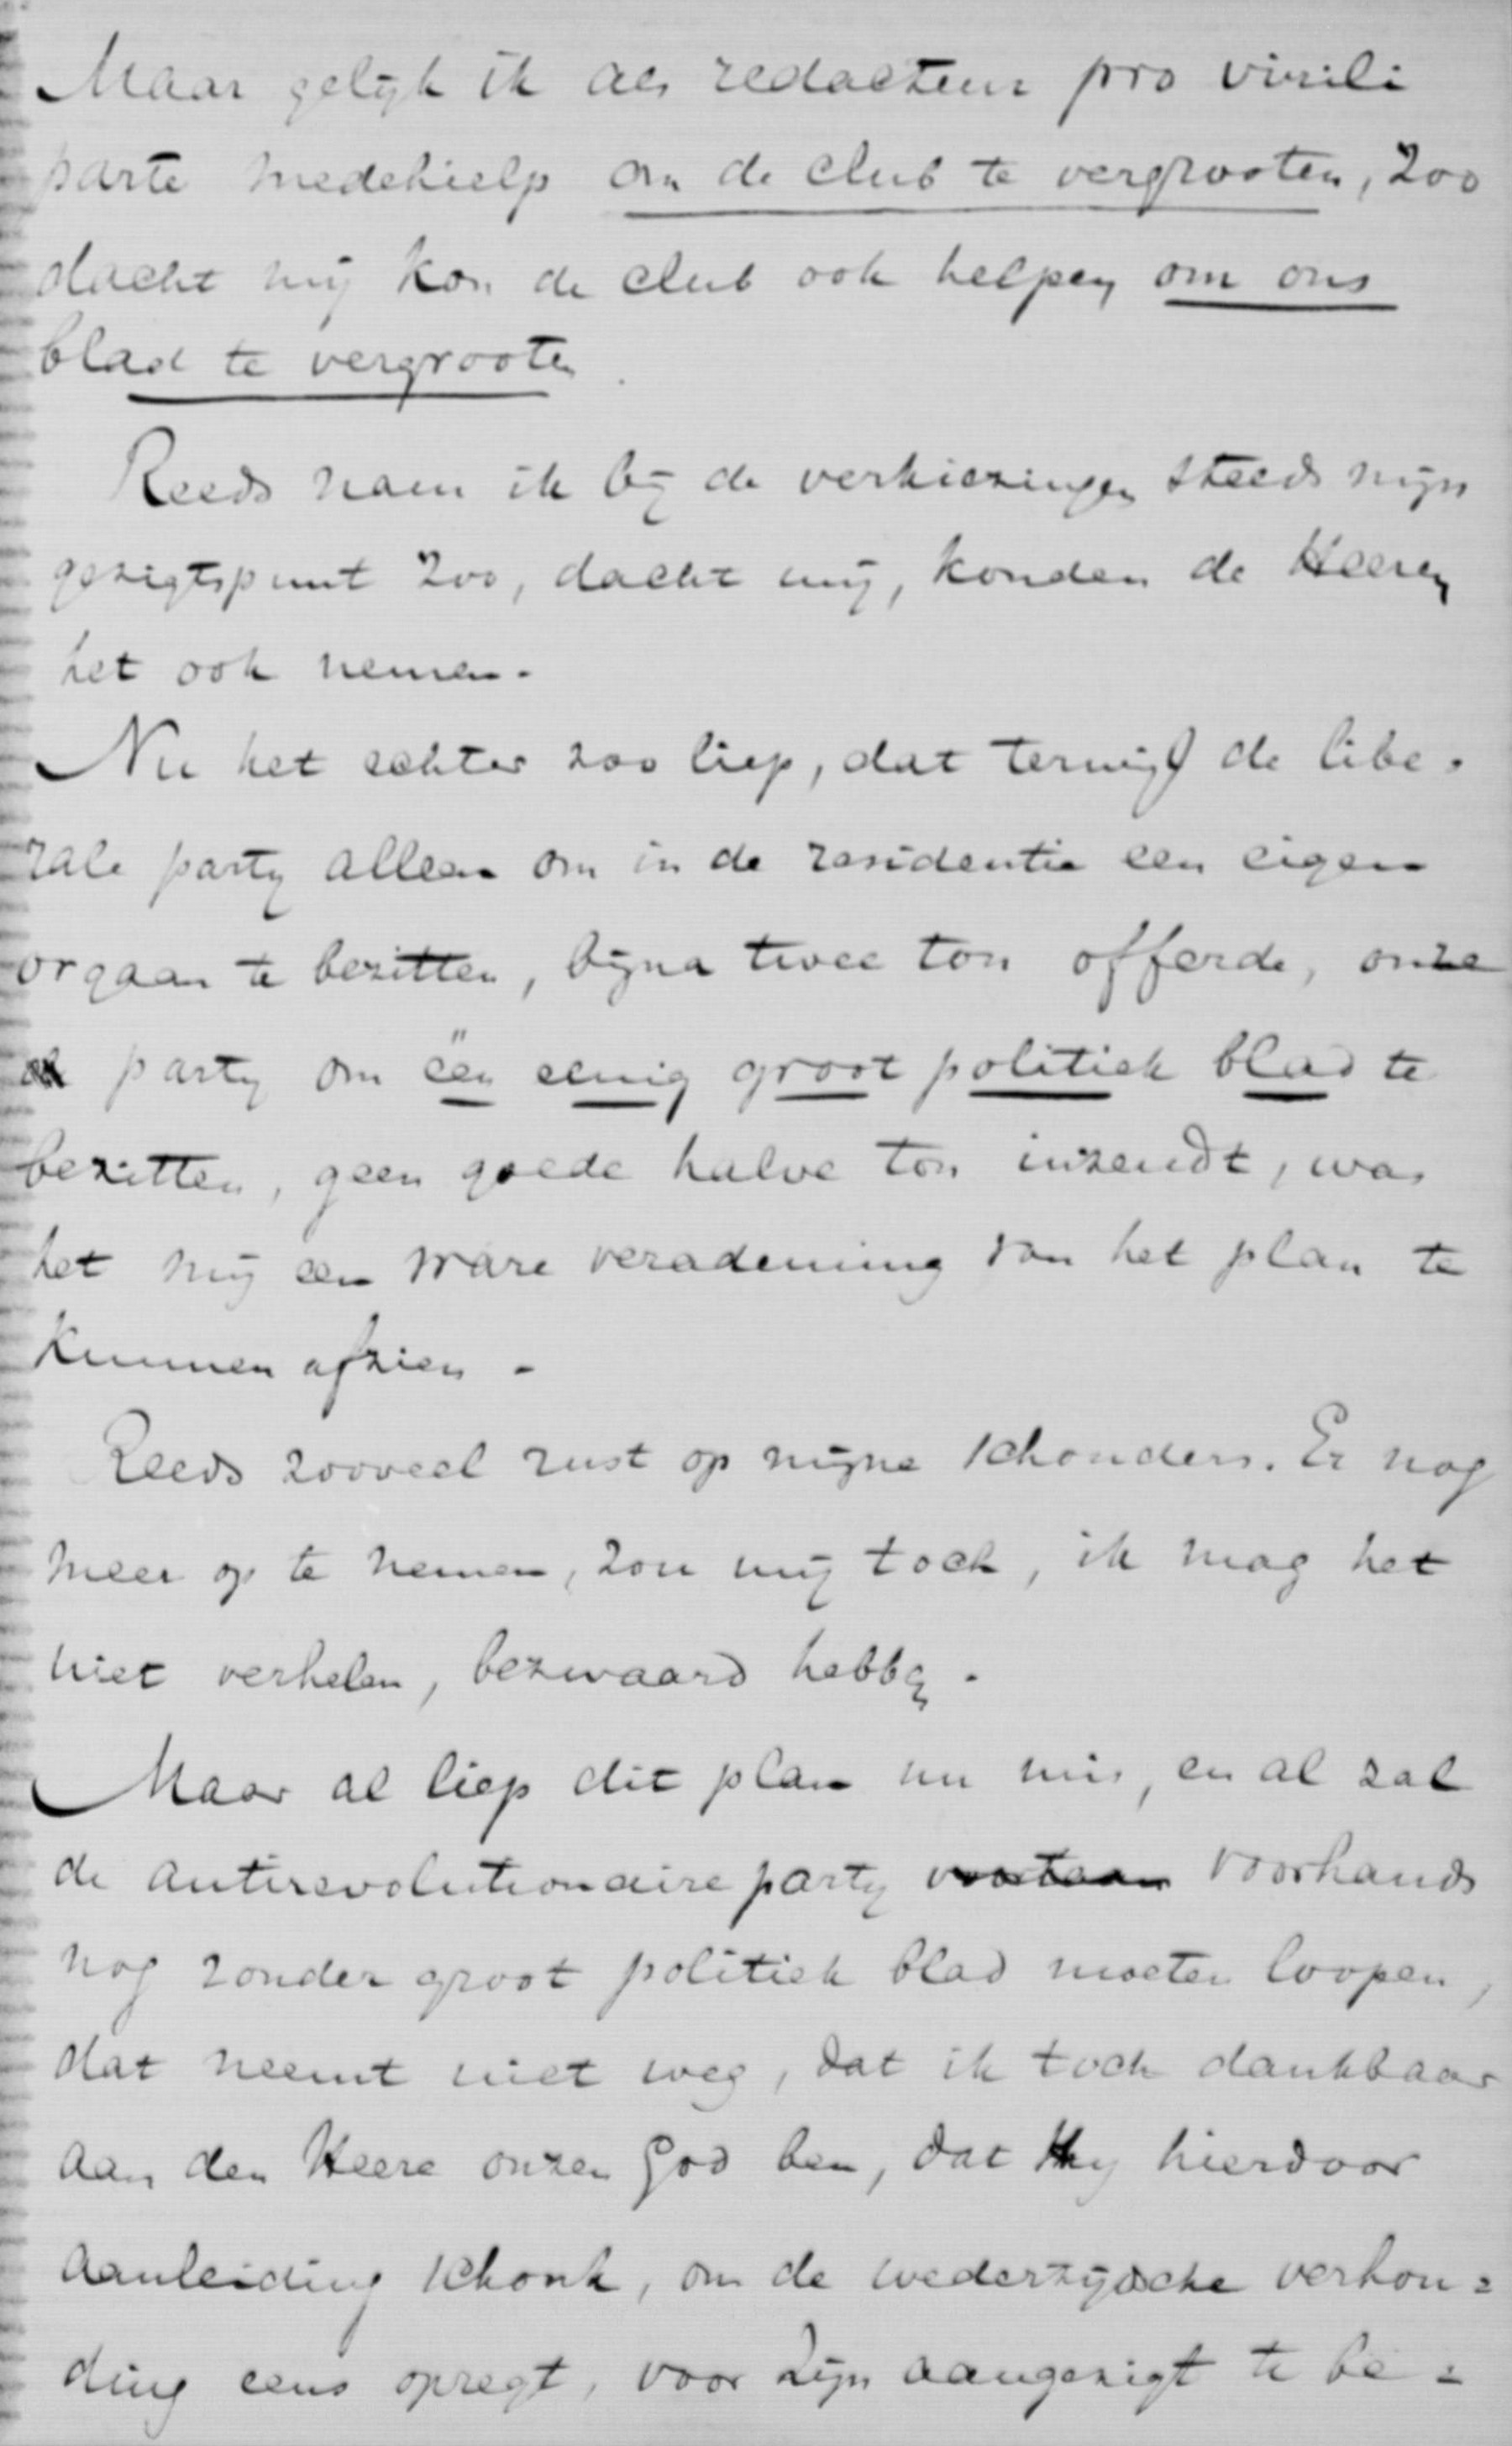 Maar gelijk ik als redacteur pro virili
parte medehielp om de club te vergrooten, zoo
dacht mij kon de club ook helpen om ons
blad te vergrooten.
Reeds nam ik bij de verkiezingen steeds mijn
gezigtspunt zoo, dacht mij, konden de Heeren
het ook nemen.
Nu het echter zoo liep, dat terwijl de libe-
rale party alleen om in de residentie een eigen
orgaan te bezitten, bijna twee ton offerde, onze
party om één eenig groot politiek blad te
bezitten, geen goede halve ton inzendt, was
het mij een ware verademing van het plan te
kunnen afzien.
Reeds zooveel rust op mijne schouders. Er nog
meer op te nemen, zou mij toch, ik mag het
niet verhelen, bezwaard hebben.
Maar al liep dit plan nu mis, en al zal
de antirevolutionaire party voortaan voorhands
nog zonder groot politiek blad moeten loopen,
dat neemt niet weg, dat ik toch dankbaar
aan den Heere onzen God ben, dat Hy hierdoor
aanleiding schonk, om de wederzijdsche verhou=
ding eens opregt, voor Zijn aangezigt te be=